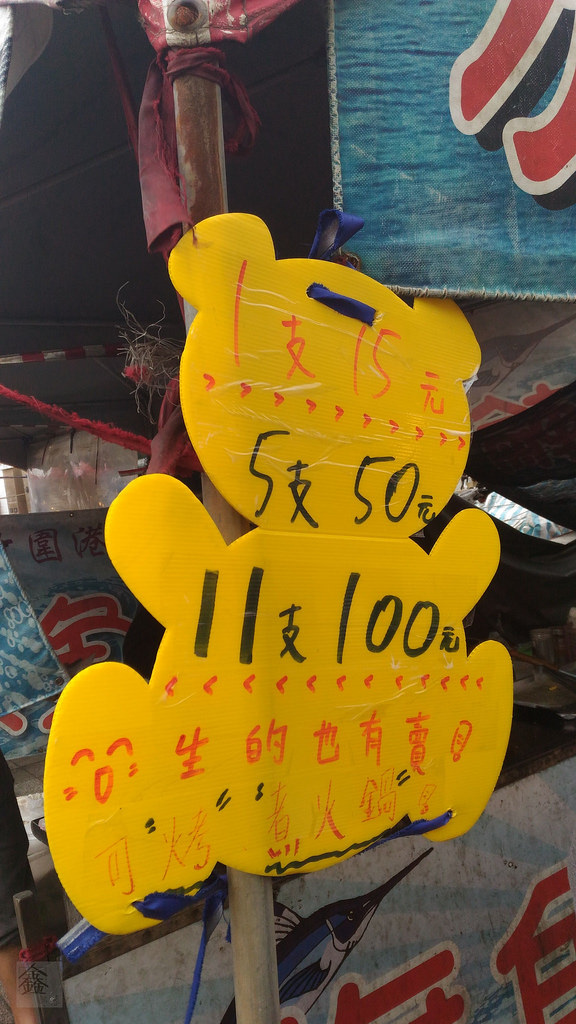 1支15元
5支50元
11支100元
生的也有賣!
可"烤""煮火鍋"!
圍港
鑫